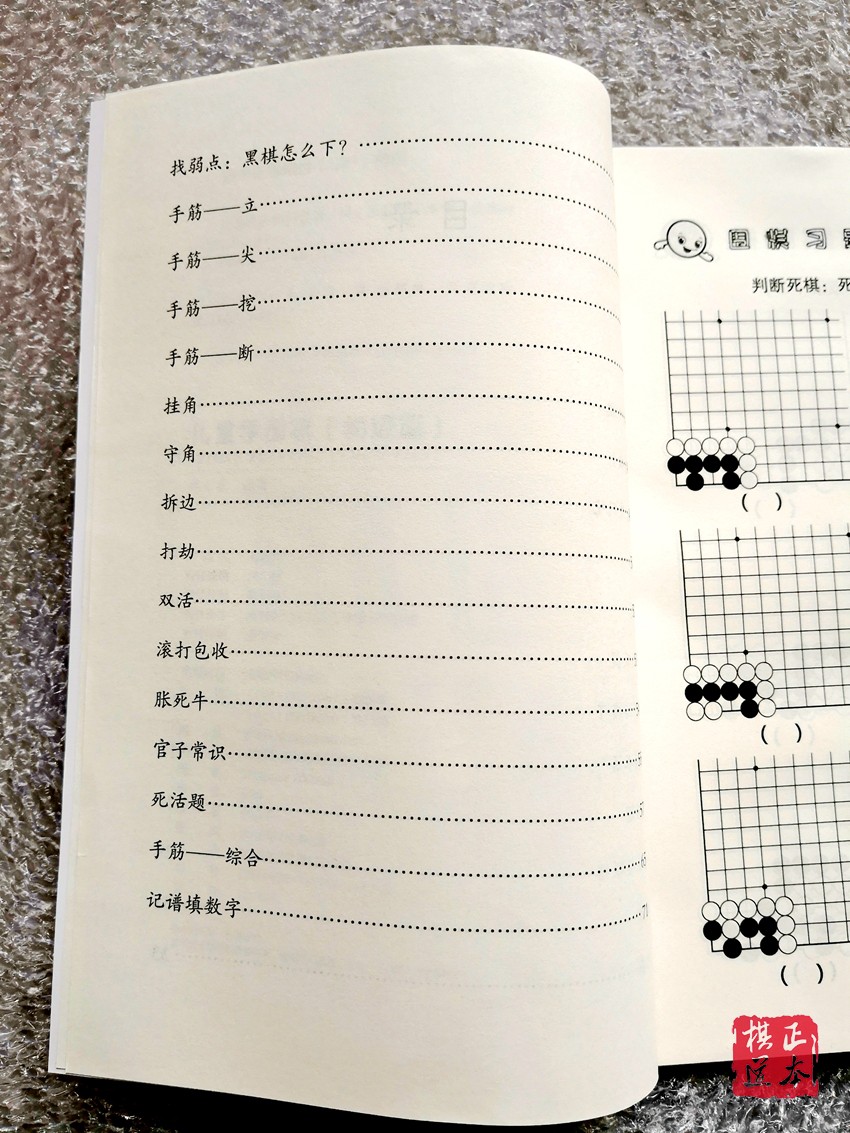 找弱点：黑棋怎么下？
手筋——立
手筋——尖
手筋——挖
手筋——断
挂角
守角
拆边
打劫
双活
滚打包收
胀死牛
官子常识
死活题
手筋——综合
记谱填数字
围棋习
判断死棋：死
( )
( )
( )
棋正
道本